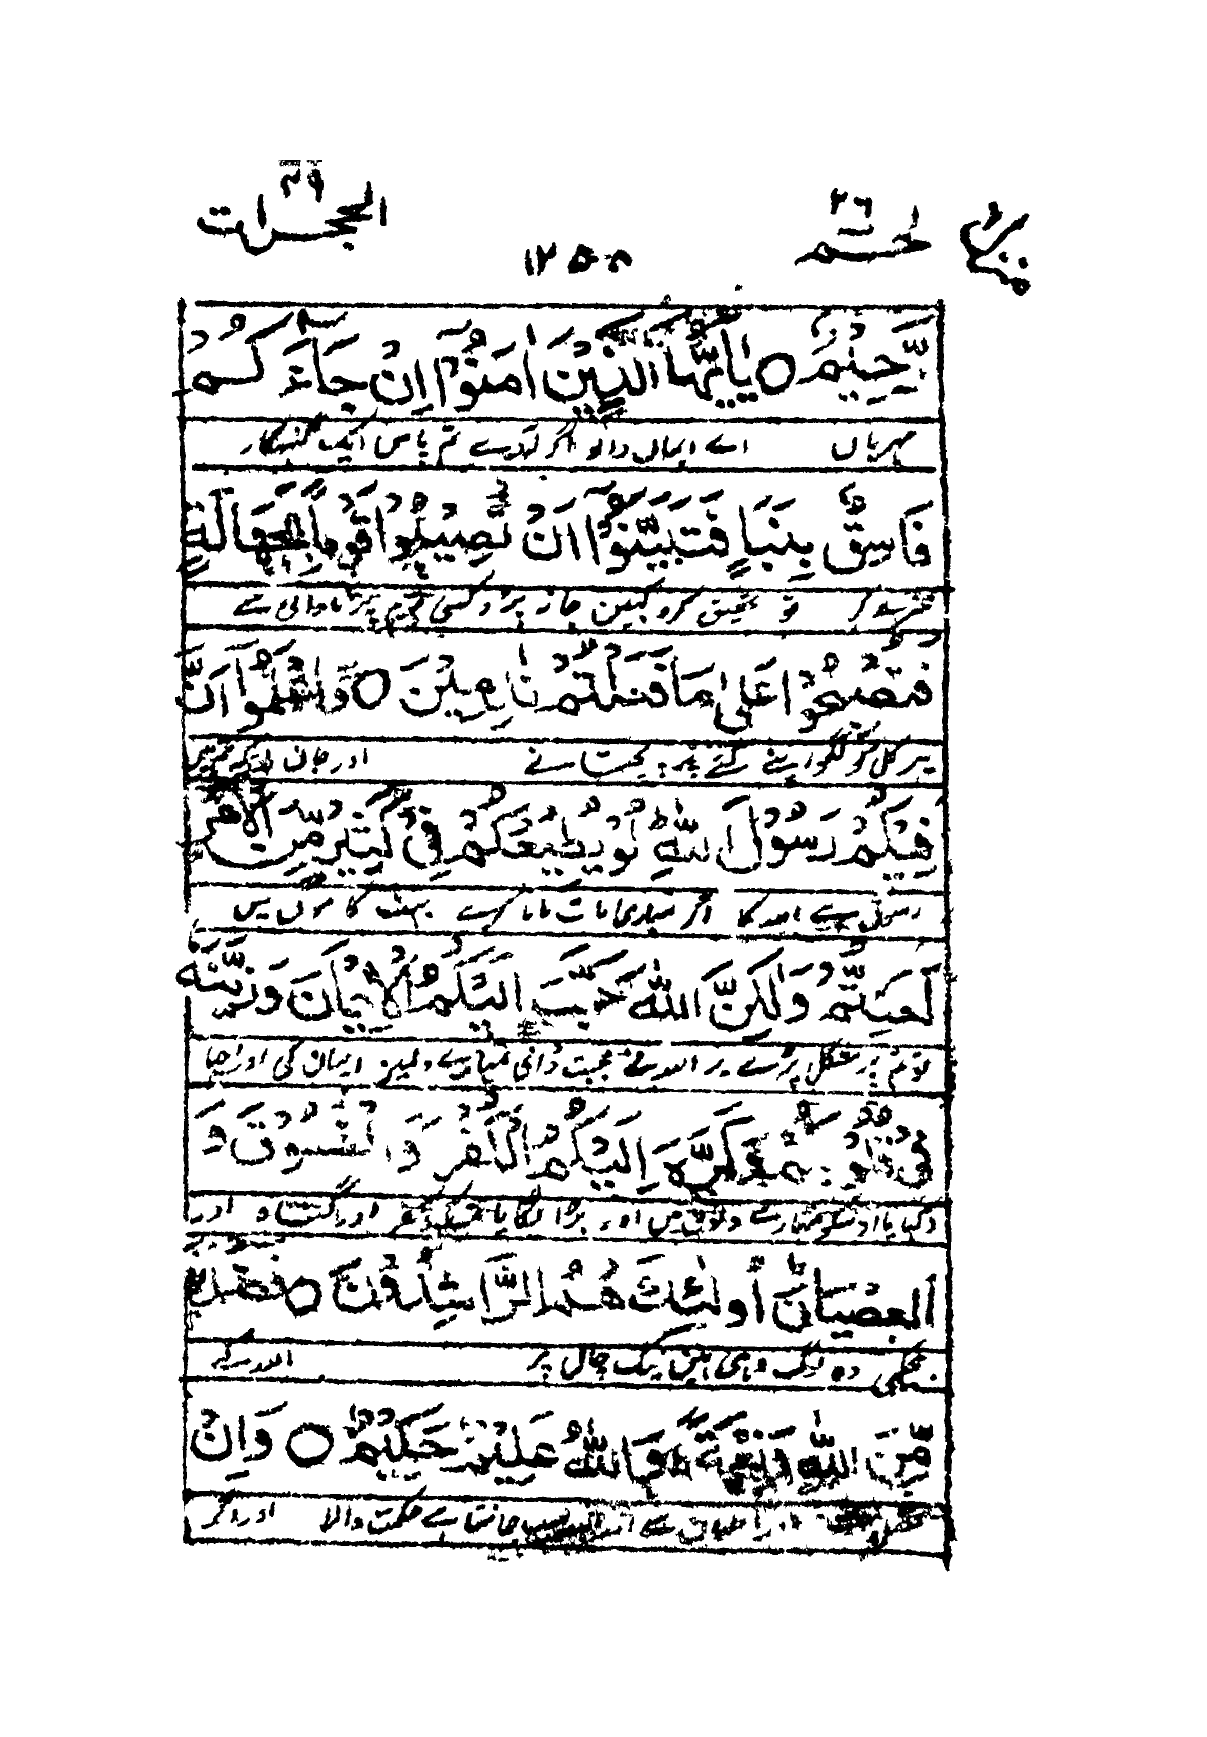 الحجرات ٤٩
١٢٥٠
حٰم ٢٦
رَّحِيْمٌ ○ يٰاَيُّهَا الَّذِيْنَ اٰمَنُوْٓا اِنْ جَآءَكُمْ
مہربان اے ایمان والو اگر آوے تم پاس ایک گنہگار
فَاسِقٌۢ بِنَبَاٍ فَتَبَيَّنُوْٓا اَنْ تُصِيْبُوْا قَوْمًۢا بِجَهَالَةٍ
خبر لے کر تو تحقیق کرو کہیں جا نہ پڑو کسی قوم پر نادانی سے
فَتُصْبِحُوْا عَلٰى مَا فَعَلْتُمْ نٰدِمِيْنَ ○ وَاعْلَمُوْٓا اَنَّ
پھر کل کو لگو اپنے کئے پر پچتانے اور جان لو کہ تم میں
فِيْكُمْ رَسُوْلَ اللّٰهِ لَوْ يُطِيْعُكُمْ فِيْ كَثِيْرٍ مِّنَ الْاَمْرِ
رسول ہے اللہ کا اگر تمہاری بات مانا کرے بہت کاموں میں
لَعَنِتُّمْ وَلٰكِنَّ اللّٰهَ حَبَّبَ اِلَيْكُمُ الْاِيْمَانَ وَزَيَّنَهٗ
تو تم پر مشکل پڑے پر اللہ نے محبت ڈالی تمہارے دل میں ایمان کی اور اچھا
فِيْ قُلُوْبِكُمْ وَكَرَّهَ اِلَيْكُمُ الْكُفْرَ وَالْفُسُوْقَ وَ
دکھایا اوسکو تمہارے دلوں میں اور برا لگایا تمکو کفر اور گناہ اور
الْعِصْيَانَ ؕ اُولٰٓئِكَ هُمُ الرّٰشِدُوْنَ ○ فَضْلًا
بیحکمی وہ لوگ وہی ہیں نیک چال پر اللہ کے
مِّنَ اللّٰهِ وَنِعْمَةً ؕ وَاللّٰهُ عَلِيْمٌ حَكِيْمٌ ○ وَاِنْ
سب جانتا ہے حکمت والا اور اگر